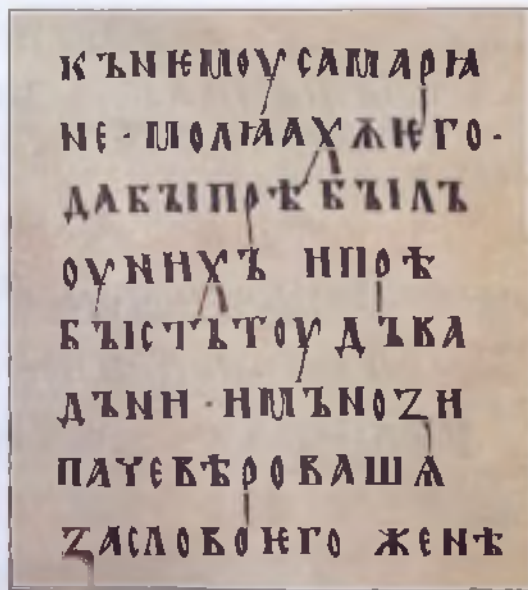 КЪНѤМОУСАМАРꙖ
НЕ · МОЛꙖАХѪѤГО ·
ДАБЪІПРѢБЪІЛЪ
ОУНИХЪ ИПРѢ
БЪІСТЪТОУДЪВА
ДЪНИ · ИМЪНОꙀИ
ПАЧЕВѢРОВАШѦ
ꙀАСЛОВОѤГО ЖЕНѢ